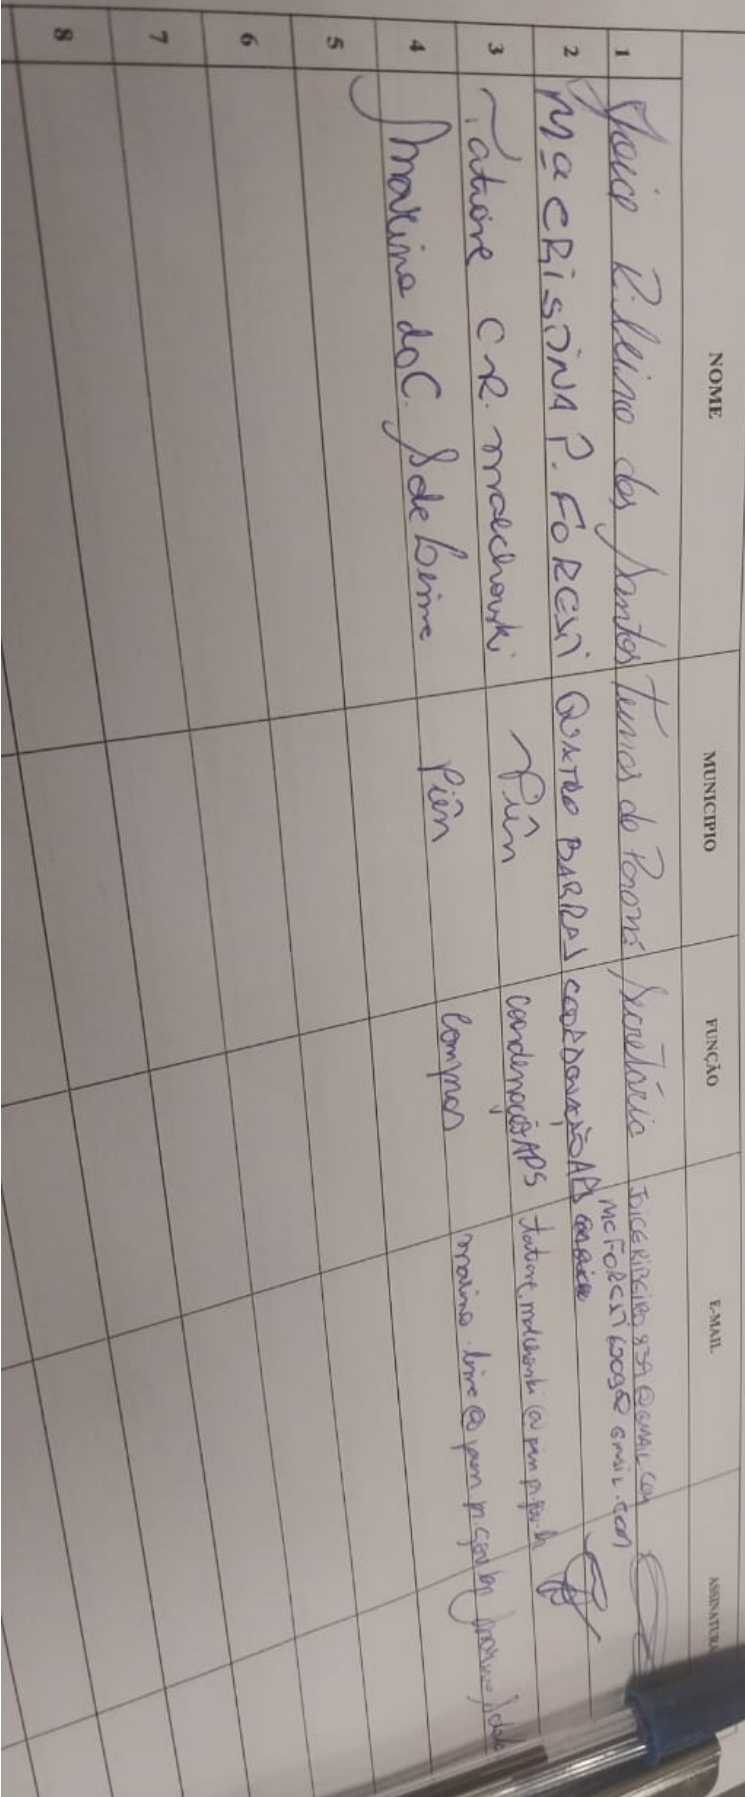 NOME MUNICIPIO FUNÇÃO E-MAIL ASSINATURA
1 Joice Ribeiro dos Santos Tunas do Paraná Secretária JOICERIBEIRO939@GMAIL.COM
2 Mª CRISTINA P. FORESTI QUATRO BARRAS COORDENAÇÃO APS
3 Tatiane C R. Malchovski Piên coordenação APS
4 Marina do C. S de Lima Piên Compras marina.lima@pien.pr.gov.br
5
6
7
8